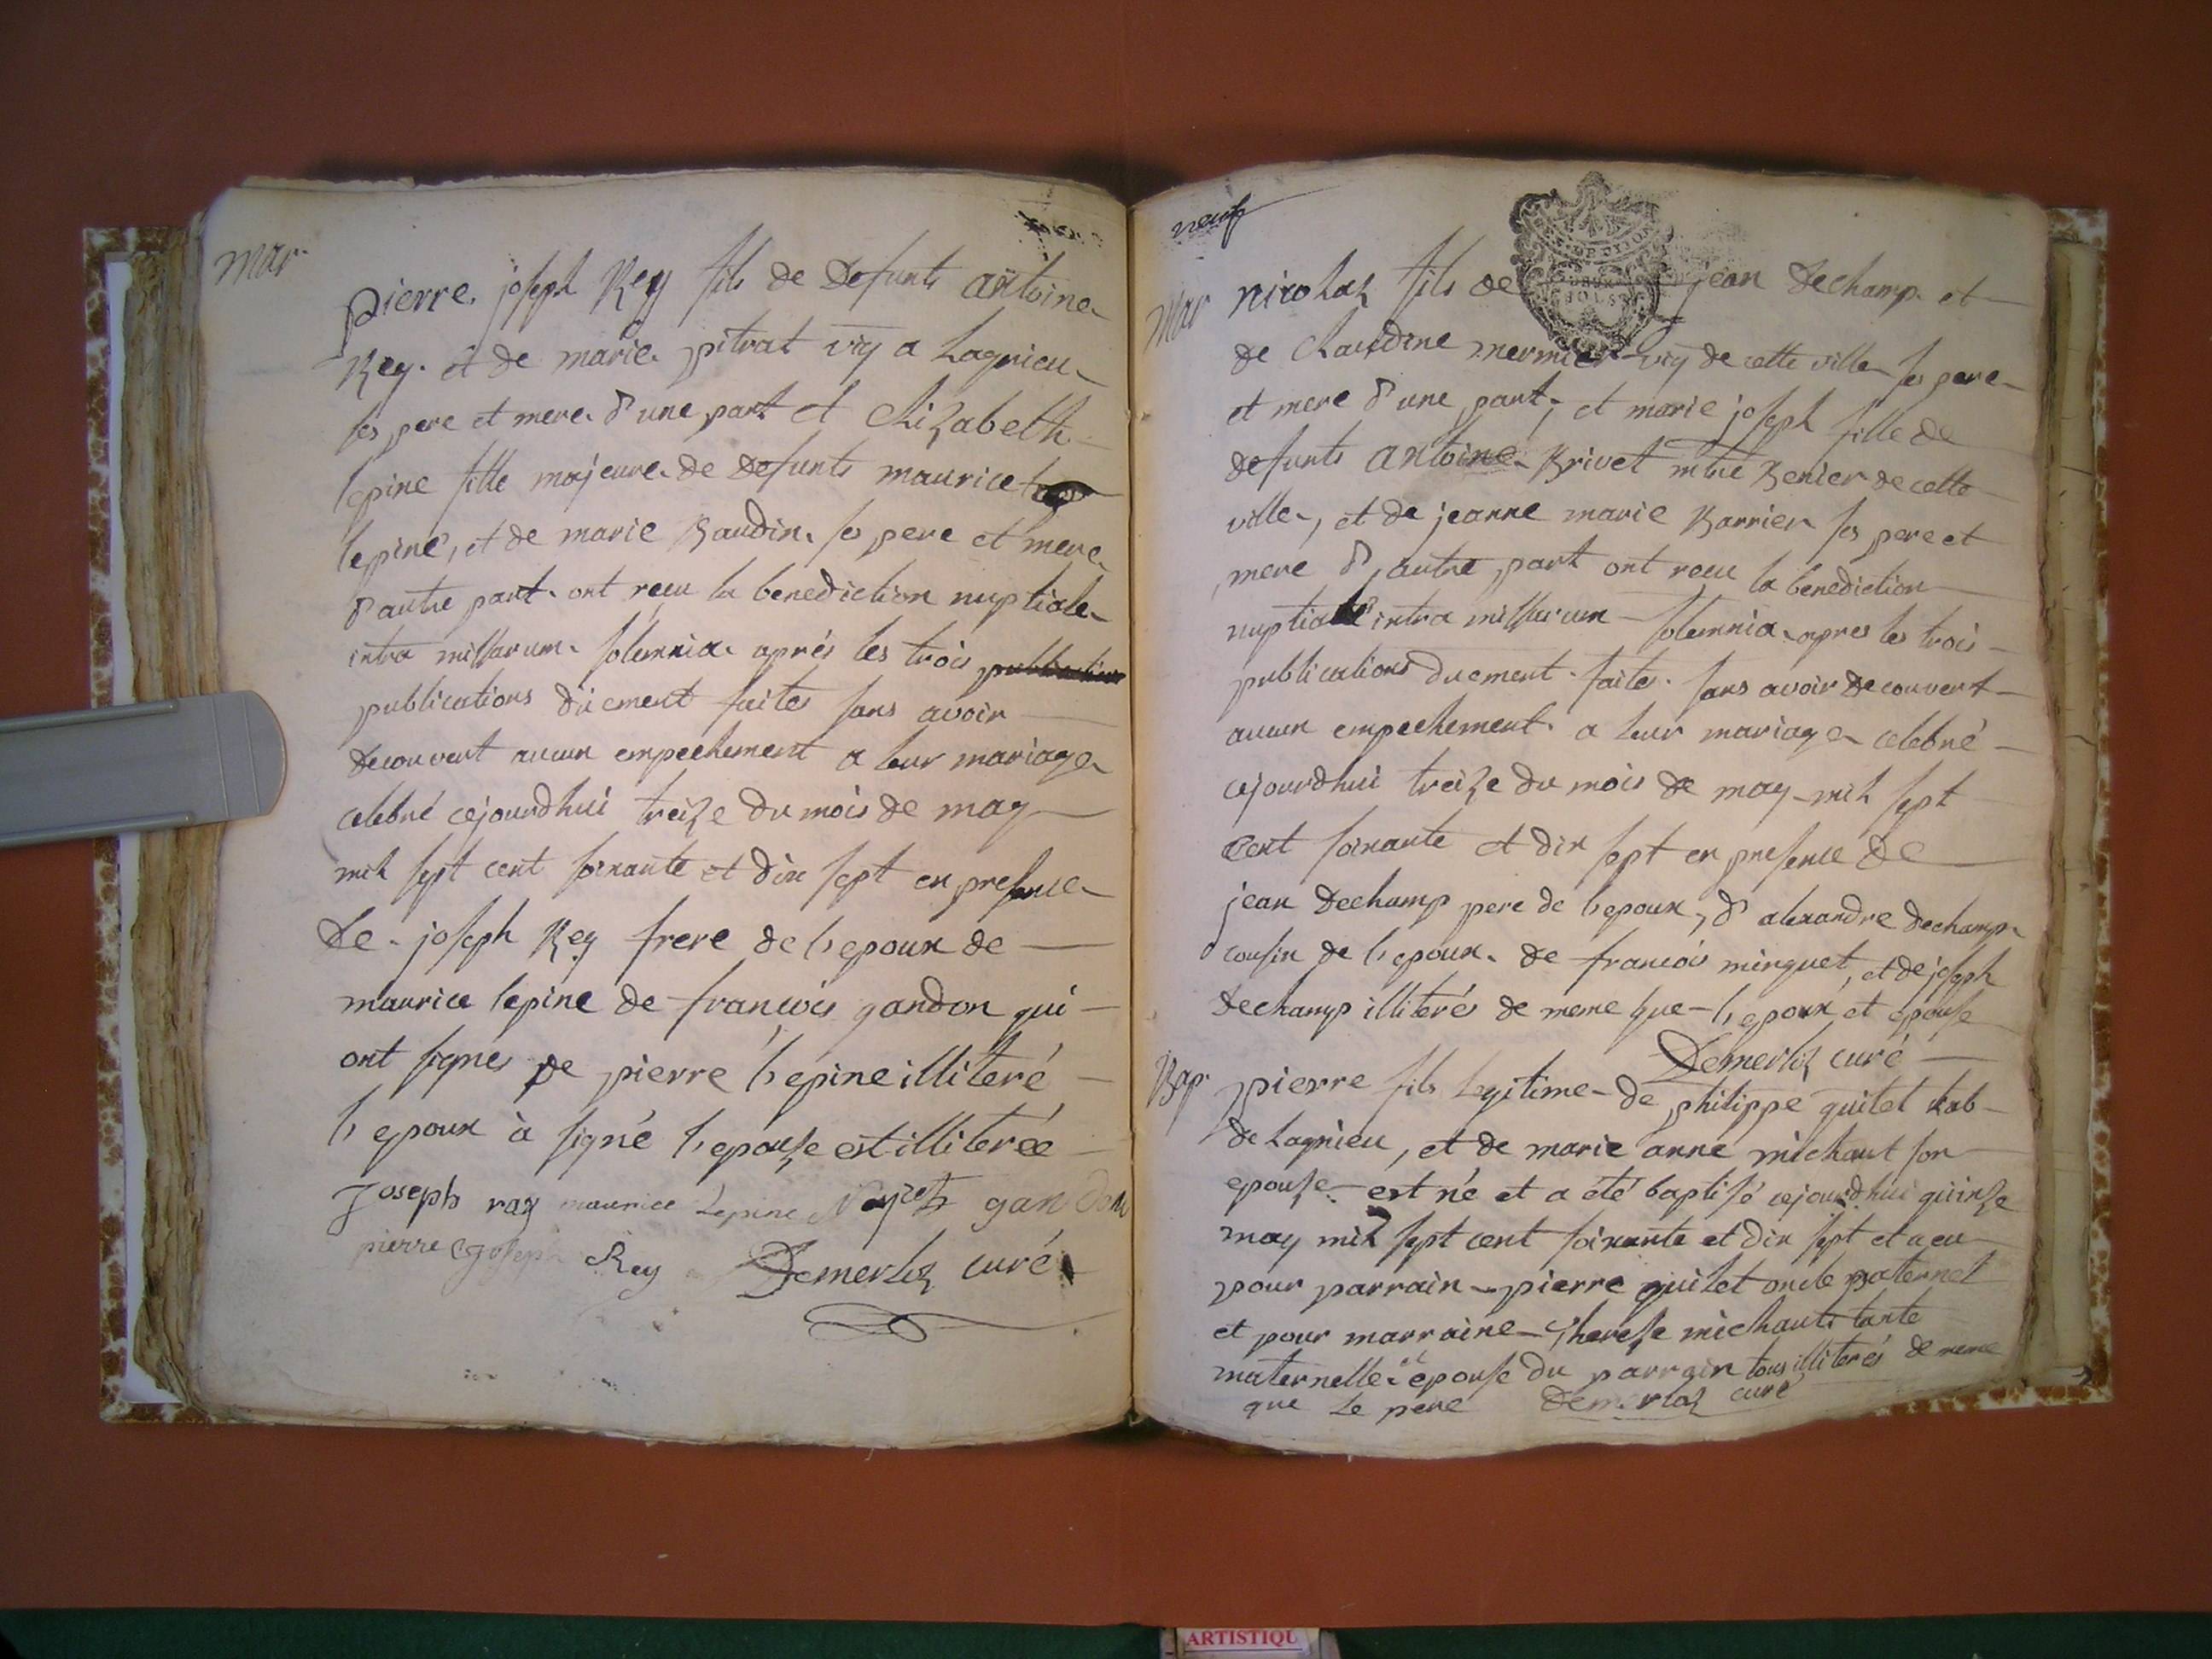 mar
pierre. joseph Rey fils de Defunts antoine
Rey. et de marie. pitrat viy a Lagnieu
ses pere et mere. d'une part et Elizabeth
lepine fille majeure de Defunts maurice
lepine, et de marie Baudin. ses pere et mere
d'autre part. ont reçu la benediction nuptiale
intra missarum. solemnia. aprés les trois publications
publications düement faites sans avoir
decouvert aucun empechement a leur mariage
celebré cejourdhui treize du mois de may
mil sept cent soixante et dix sept en presence
De. joseph Rey frere de l'epoux de
maurice lepine de françois gandon qui
ont signés de pierre l'epine illiteré
l'epoux à signé l'epouse est illiterée
Joseph ray maurice Lepine gandon
pierre joseph Rey Demerloz curé
neuf
Mar nicolas fils de jean dechamp. et
de Claudine mermier viy de cette ville ses pere
et mere d'une part, et marie joseph fille de
defunts antoine Brivet mtre Benier de cette
ville, et de jeanne marie Barrier ses pere et
mere d'autre part ont reçu la benediction
nuptiale intra missarum solemnia. apres les trois
publications duement. faites. sans avoir decouvert
aucun empechement. a leur mariage celebré
cejourdhui treize du mois de may mil sept
cent soixante et dix sept en presence de
jean dechamp pere de l'epoux, d'alexandre dechamp
cousin de l'epoux. de françois minguet, et de joseph
dechamp illiterés de meme que l'epoux et épouse
Demerloz curé
Bap. pierre fils legitime de philippe quilet hab
de Lagnieu, et de marie anne michaut son
epouse est né et a été baptisé cejourdhui quinze
may mil sept cent soixante et dix sept et a eu
pour parrain pierre quilet oncle paternel
et pour marraine Therese michaut tante
maternelle épouse du parrain tous illiterés de meme
que le pere Demerloz curé
ARTISTIQU